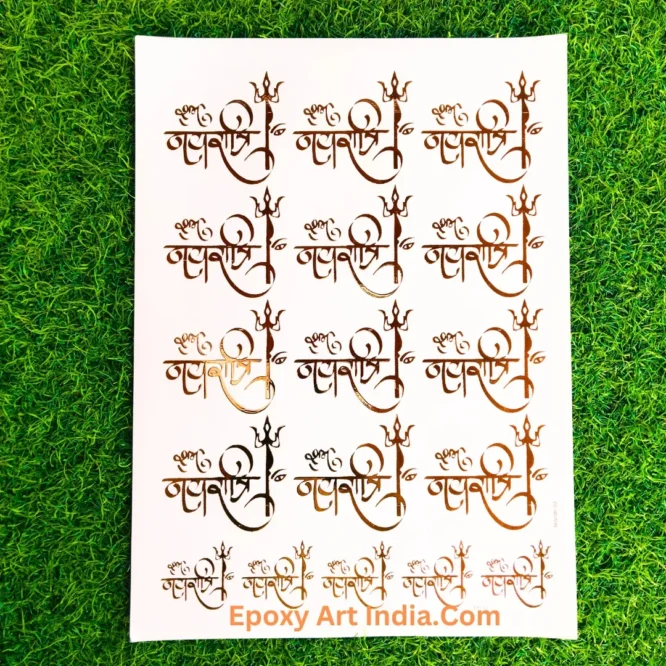 शुभ शुभ शुभ
नवरात्रि नवरात्रि नवरात्रि
शुभ शुभ शुभ
नवरात्रि नवरात्रि नवरात्रि
शुभ शुभ शुभ
नवरात्रि नवरात्रि नवरात्रि
शुभ शुभ शुभ
नवरात्रि नवरात्रि नवरात्रि
शुभ शुभ शुभ शुभ शुभ
नवरात्रि नवरात्रि नवरात्रि नवरात्रि नवरात्रि
Epoxy Art India.Com